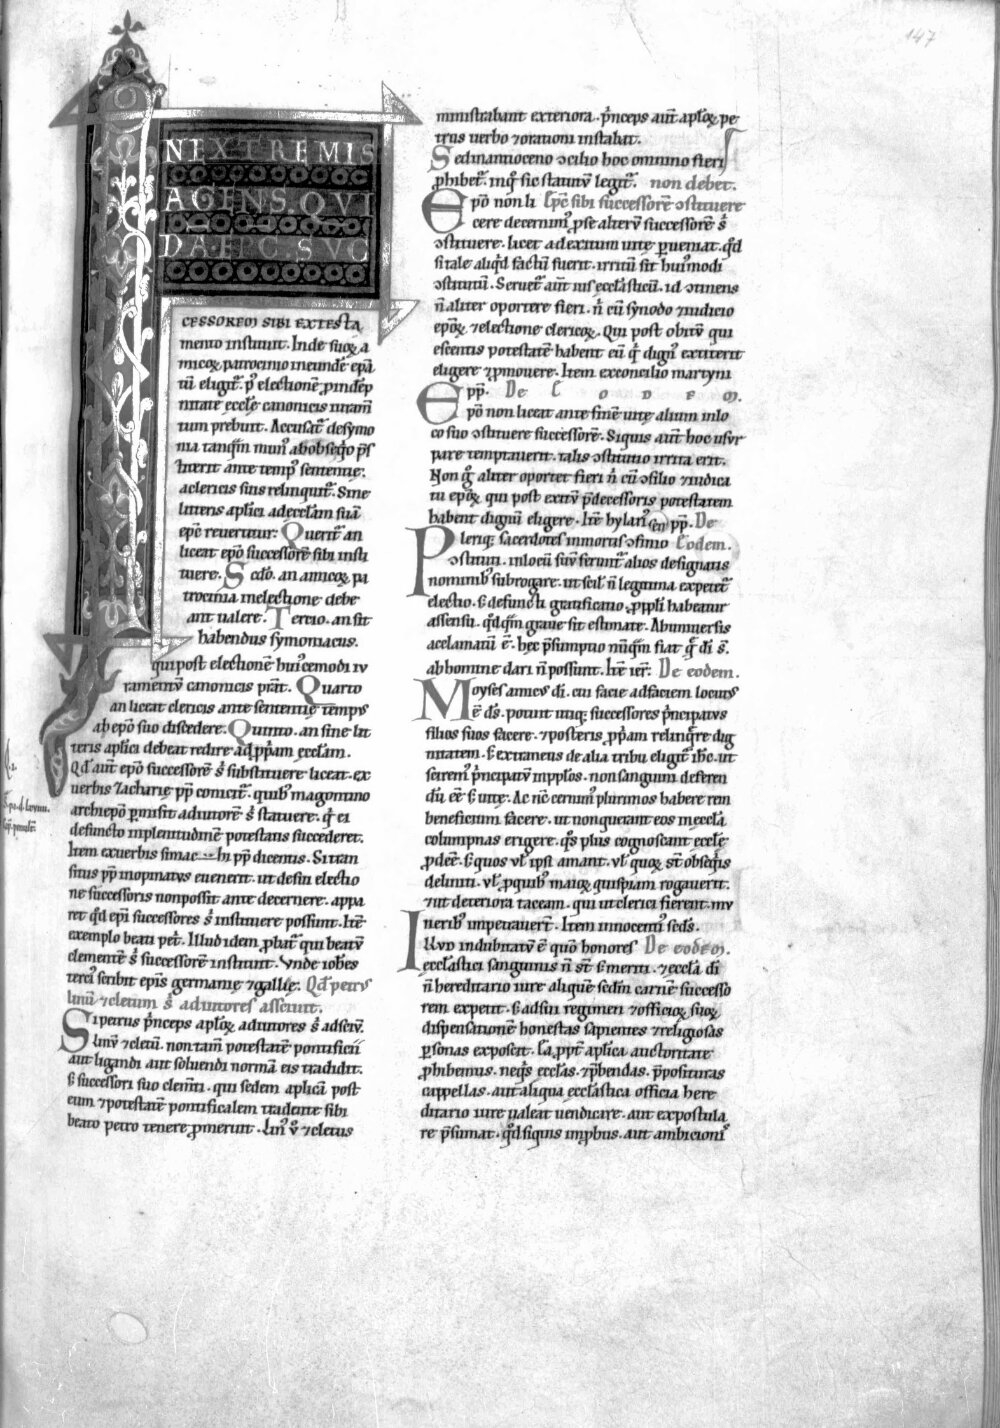 147
IN EXTREMIS
AGENS. QVI
DĀ. EPC. SVC
CESSOREM SIBI EX TESTA
mento instituit. Inde suoꝝ a
micoꝝ patrocinio ineundē epa
tū eligit᷑. p᷒ electionē ꝓ indēp
nitate eccłe canonicis iuram̄
tum prebuit. Accusat᷑ de symo
nia tanꝗ̄m mun᷒ ab obseq̇o p̄s
titerit ante temp᷒ sententie.
a clericis suis relinquit᷑. Sine
litteris apłici ad ecclam suā
epc̄ reuertitur. Querit᷑ an
liceat epō successorē sibi insti
tuere. Scdo. an amicoꝝ pa
trocinia in electione debe
ant ualere. Tercio. an sit
habendus symoniacus.
qui post electionē hui᷒cemodi iu
ramentū canonicis p̄stat. Quarto
an liceat clericis ante sententie tempus
ab epō suo discedere. Quinto. an sine lit
teris apłici debeat redire ad ꝓpam ecclam.
Qd aut̄ epō successorē s᷒ substituere liceat. ex
uerbis Zacharie pp̄ conicit᷑. quib᷒ magontino
archiepō ꝑmisit adiutorē s᷒ statuere. q̇ ei
defuncto in plenitudinē potestatis succederet.
Item ex uerbis simac hi pp̄ dicentis. Si tran
situs pp̄ inopinatus euenerit. ut de sui electio
ne successoris non possit ante decernere. appa
ret qd epī successores s᷒ instituere possunt. Itē
exemplo beati pet᷒. Illud idem ꝓbat᷑ qui beatū
clementē s᷒ successorē instituit. Vnde iohes
terci᷒ scribit epis germanie ⁊ gallie. Qd petrus
linū ⁊ cletum s᷒ adiutores asseiuit.
Si petrus p̄nceps apłoꝝ adiutores s᷒ adsciu̅.
linū ⁊ cletū. non tam̄ potestatē pontificii
aut ligandi aut soluendi normā eis tradidit.
s᷒ successori suo clem̄ti. qui sedem aplicā post
eum ⁊ potestatē pontificalem tradente sibi
beato petro tenere ꝓmeruit. Lin᷒ ū ⁊ cletus
ministrabant exteriora. p̄nceps aut̄ apłoꝝ pe
trus uerbo ⁊ orationi instabat.
Sed in antioceno ꝯcilio hoc omnino fieri
ꝓhibet᷑. in q᷒ sic statutū legit᷑. non debet.
Epō non li Epc̄ sibi successorē ꝯstituere
cere decernim᷒ ꝓ se alterū successorē s᷒
ꝯstituere. licet ad exitum uite ꝑueniat. qd
si tale aliqd factū fuerit. irritū sit hui᷒modi
ꝯstitutū. Seruet᷑ aut̄ ius ecclasticū. id ꝯtinens
ñ aliter oportere fieri. n᷒ cū synodo ⁊ iudicio
epoꝝ ⁊ electione clericoꝝ. Qui post obitū qui
escentis potestatē habent eū q᷒ dign᷒ extiterit
eligere ⁊ ꝓmouere. Item ex concilio martyni
pp̄. De eodem.
Epō non liceat ante finē uite alium in lo
co suo ꝯstituere successorē. Siquis aut̄ hoc usur
pare temptauerit. talis ꝯstitutio irrita erit.
Non g᷒ aliter oportet fieri n᷒ cū ꝯsilio ⁊ iudica
tu epoꝝ qui post exitū p̄decessoris potestatem
habent dignū eligere. Itē hylari᷒ pp̄. De
Pleriq; sacerdotes in mortis ꝯfinio Eodem.
ꝯstituti. in locū suū ferunt᷑ alios designatis
nominib᷒ subrogare. ut scil᷒ ñ legitima expetet᷑
electio. s᷒ defuncti gratificatio. ꝓ ppłi habeatur
assensu. qd qꝗ̄m graue sit estimate. Ab uniuersis
acclamatū ē. hec p̄sumptio nūꝗ̄m fiat q᷒ di s᷒.
ab homine dari ñ possunt. Itē ier᷒. De eodem.
Moyses amicus di. cui facie ad faciem locutus
ē ds. potuit utiq; successores p̄ncipatus
filios suos facere. ⁊ posteris ꝓpam relinq̄re dig
nitatem. s᷒ extraneus de alia tribu eligit᷑ ihc̄. ut
scirem᷒ p̄ncipatū in pplos. non sanguini deferen
dū ēē s᷒ uite. Ac nc̄ cernim᷒ plurimos habere rem
beneficium facere. ut non querant eos in ecclia
columpnas erigere. q᷒s plus cognoscant eccłe
ꝓdeē. s᷒ quos uł ipsi amant. uł quoꝝ st̄ obseq̇is
deliniti. uł ꝓ quib᷒ maioꝝ quispiam rogauerit.
⁊ ut deteriora taceam. qui ut clerici fierent. mu
nerib᷒ impetrauert̄. Item innocenti᷒ scds.
Illud indubitatū ē quō honores De eodem.
ecclastici sanguinis ñ st̄ s᷒ meriti. ⁊ eccla di
ñ hereditario iure aliquē sedm̄ carnē successo
rem expetit. s᷒ ad sui regimen ⁊ officioꝝ suoꝝ
dispensationē honestas sapientes ⁊ religiosas
ꝑsonas exposcit. Ea ꝓpt᷒ aplica auctoritate
ꝓhibemus. neq̇s ecclas. ⁊ p̄bendas. p̄posituras
cappellas. aut aliqua ecclastica officia here
ditario iure ualeat uendicare. aut expostula
re p̄sumat. qd siquis inꝓbus. aut ambicioni᷒